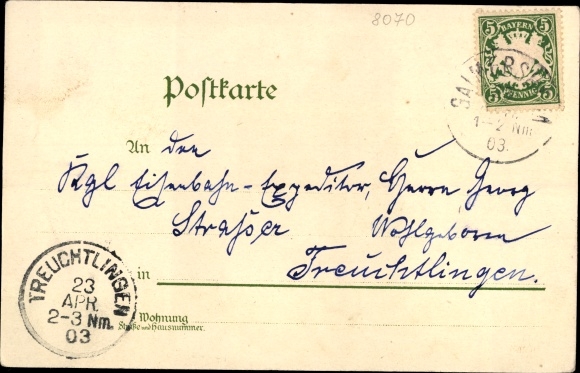 8070
5 BAYERN 5
5 PFENNIG 5
GAIMERSHEIM
1-2 Nm.
03.
Postkarte
An den
Kgl Eisenbahn-Expeditor, Herrn Georg
Straßer Wohlgeboren
in Treuchtlingen.
TREUCHTLINGEN
23
APR.
2-3 Nm.
03
Wohnung
Straße und Hausnummer.